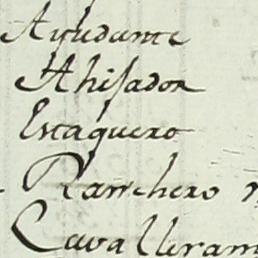 Ayudante
Ahijador
Estaquero
Ranchero
Cavalleram